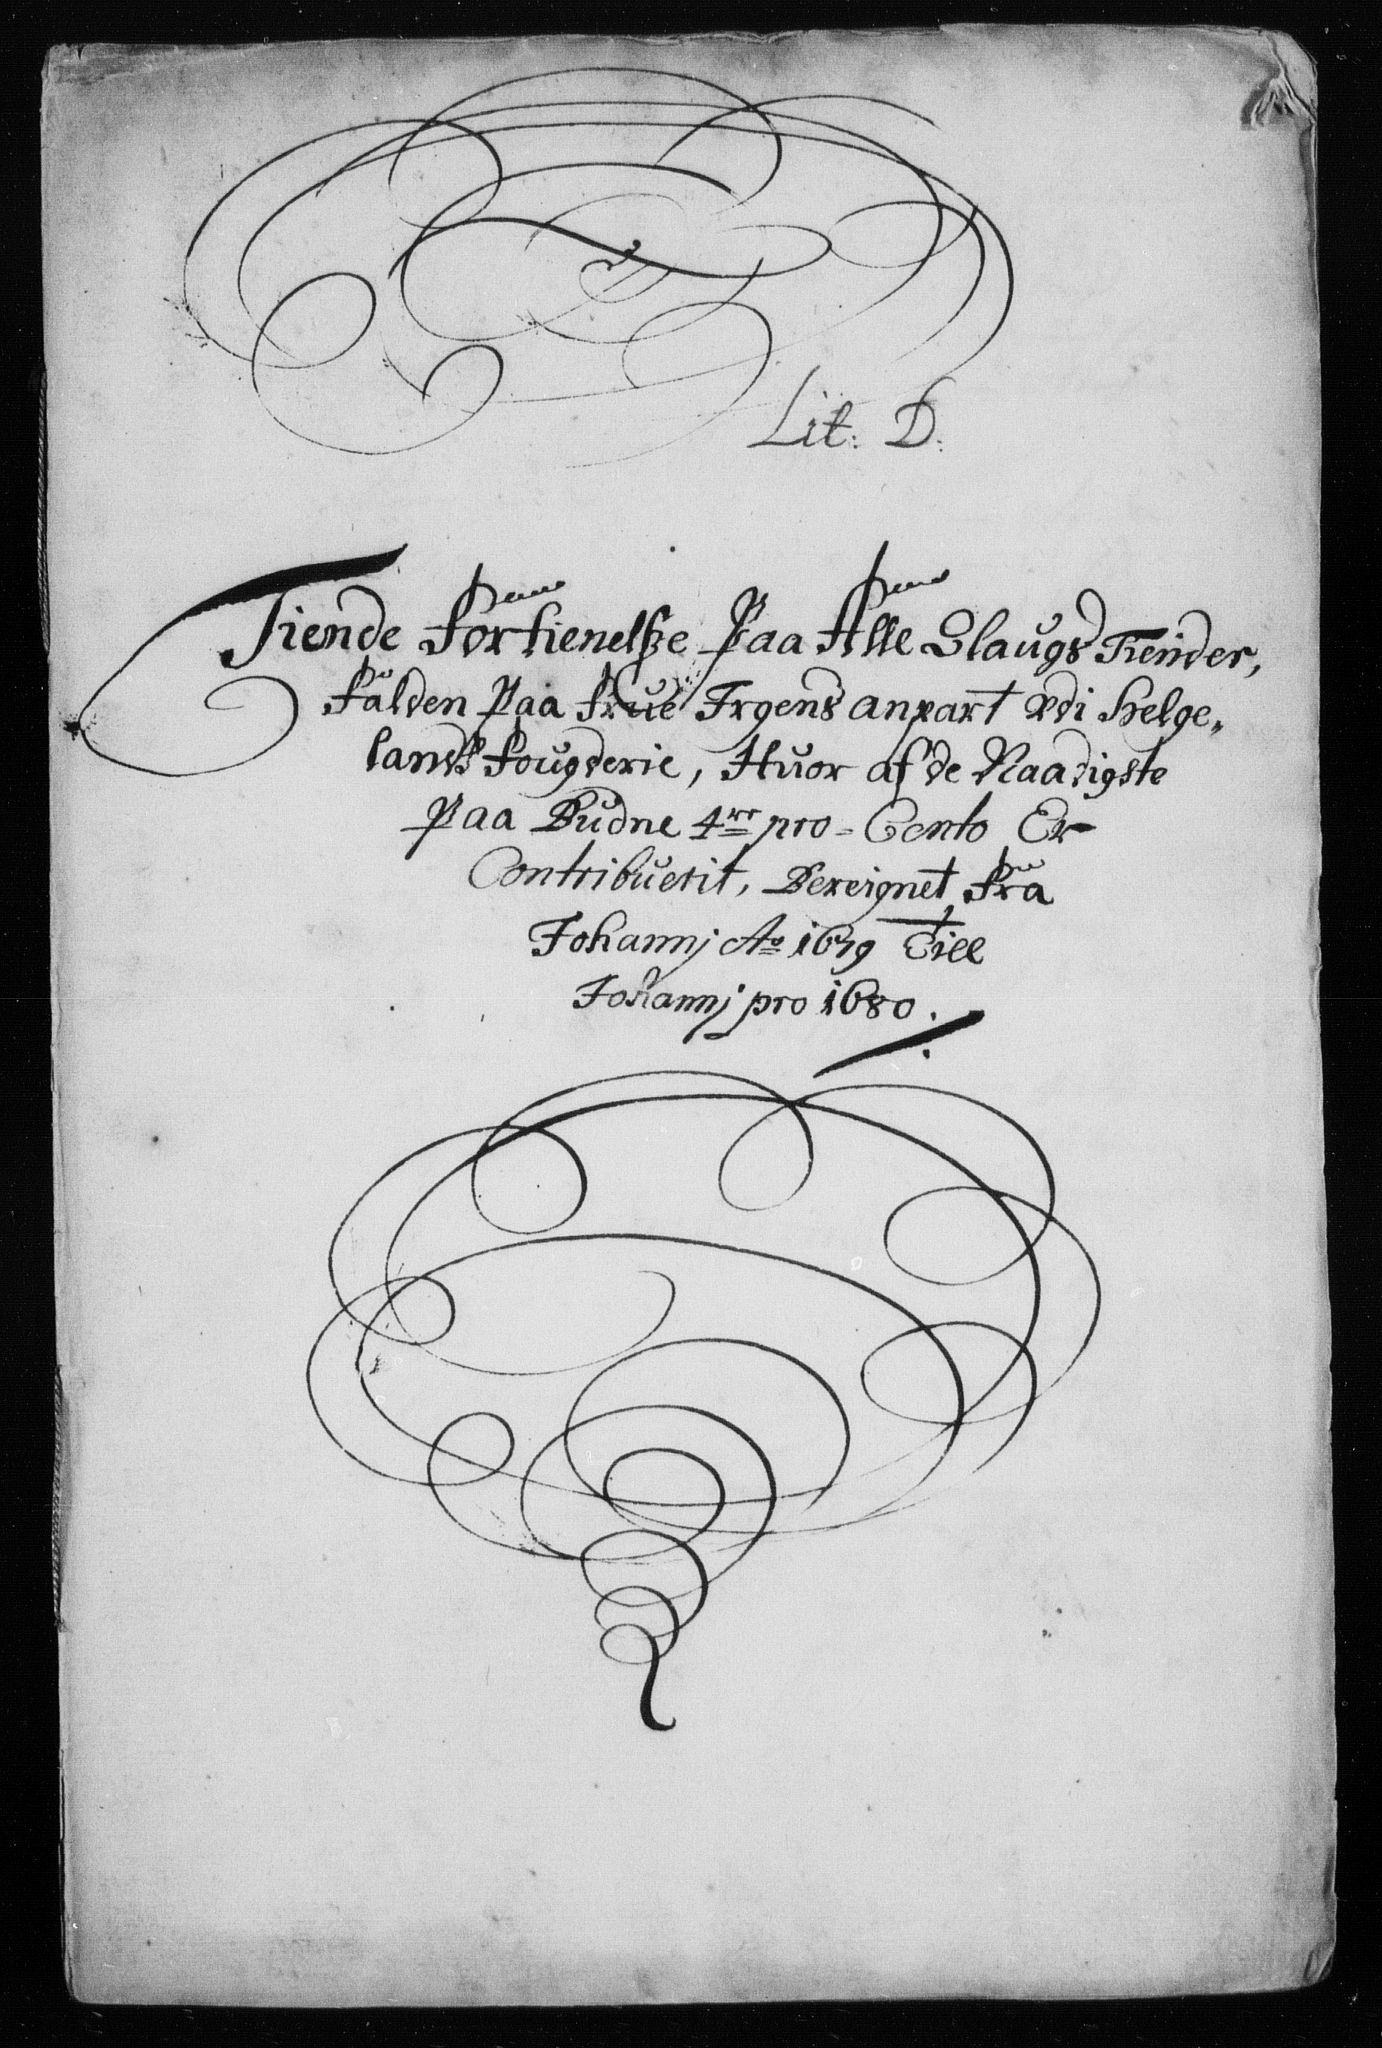 Lit: D:
Tiende Fortienelsze Paa Alle Slaugs Tiender,
Falden Paa Frue Irgens anpart Udi Helge„
lands Fougderie, Huor af de Naadigste
Paa Budne 4rr pro-Cento Er
Contribuerit, Bereignet Fra
Johannj Ao 1679 Till
Johannj pro 1680.